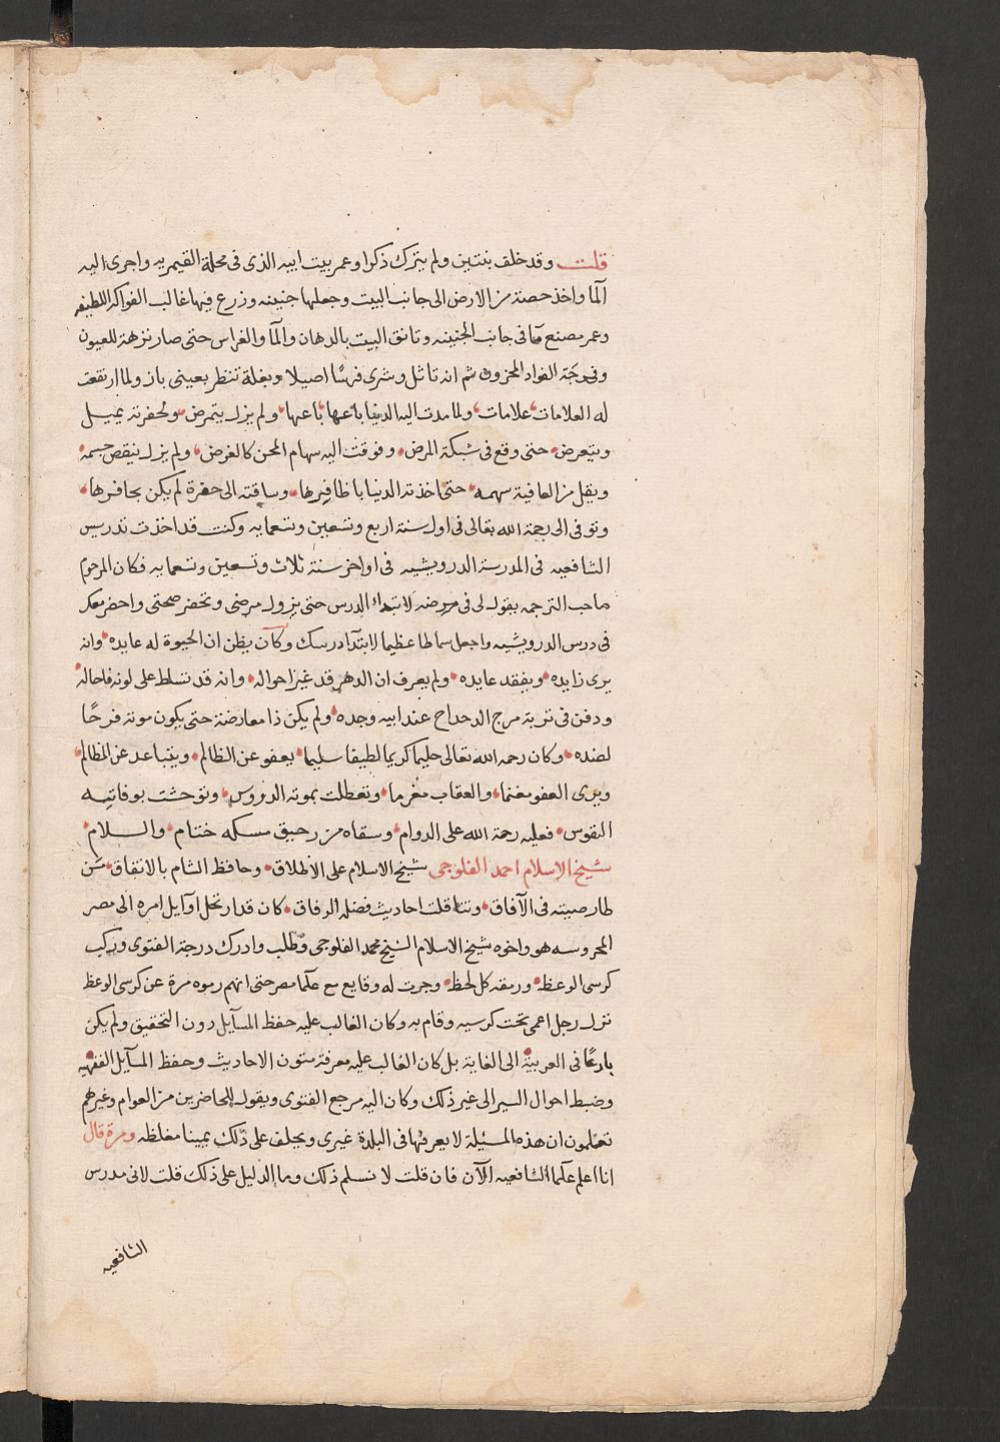 قلت وقد خلف بنتين ولم يترك ذكرا وعمر بيت ابيه الذى فى محلة القيمريه واجرى اليه
المآ واخذ حصة من الارض الى جانب البيت وجعلها جنينه وزرع فيها غالب الفواكه اللطيفه
وعمر مصنع مآ فى جانب الجنينه وتانق البيت بالدهان والمآ والغراس حتى صار نزهة للعيون
الفواد المحزون ثم انه تاثل وشرى فرسًا اصيلا وبغلة تنظر بعينى باز ولما ارتفعت
له العلامات علامات ولما مدت اليه الدنيا باعها باعها ولم يزل يتمرض ولحفرته يميل
ويتعرض حتى وقع فى شبكة المرض وفوقت اليه سهام المحن كالغرض ولم يزل ينقص جسمه
ويقل من العافية سهمه حتى اخذته الدنيا باظافيرها وساقته الى حفرة لم يكن بحافرها
وتوفى الى رحمة الله تعالى فى اول سنة اربع وتسعين وتسعمايه وكنت قد اخذت تدريس
الشافعيه فى المدرسة الدرويشيه فى اواخر سنة ثلاث وتسعين وتسعمايه فكان المرحوم
صاحب الترجمه يقول لى فى مرضه لا تبتدء الدرس حتى يزول مرضى وتحضر صحتى واحضر معك
فى درس الدرويشيه واجعل سماطا عظيما لابتدآء درسك وكان يظن ان الحيوة له عايده وانه
يرى زايده ويفقد عايده ولم يعرف ان الدهر قد غير احواله وانه قد تسلط على لونه فاحاله
ودفن فى تربة مرج الدحداح عند ابيه وجده ولم يكن ذا معارضة حتى يكون موته فرحًا
لضده وكان رحمه الله تعالى حليما كريما لطيفا سليما يعفو عن الظالم ويتباعد عن المظالم
ويرى العفو مغنما والعقاب مغرما وتعطلت بموته الدروس وتوحشت بوفاتيه
النفوس فعليه رحمة الله على الدوام وسقاه من رحيق مسكه ختام والسلام
شيخ الاسلام احمد الفلوجى شيخ الاسلام على الاطلاق وحافظ الشام بالاتفاق من
طار صيته فى الآفاق وتناقلت احاديث فضله الرفاق كان قد ارتحل اوآيل امره الى مصر
المحروسه هو واخوه شيخ الاسلام الشيخ محمد الفلوجى وطلب وادرك درجة الفتوى وركب
كرسى الوعظ ورمقه كل لحظ وجرت له وقايع مع علمآ مصر حتى انهم رموه مرة عن كرسى الوعظ
نزل رجل اعمى تحت كرسيه وقام به وكان الغالب عليه حفظ المسآيل دون التحقيق ولم يكن
بارعًا فى العربية الى الغاية بل كان الغالب عليه معرفة متون الاحاديث وحفظ المسآيل الفقهيه
وضبط احوال السير الى غير ذلك وكان اليه مرجع الفتوى ويقول للحاضرين من العوام وغيرهم
تعلمون ان هذه المسئلة لا يعرفها فى البلدة غيرى ويحلف على ذلك يمينا مغلظه ومرة قال
انا اعلم علمآ الشافعيه الآن فان قلت لا نسلم ذلك وما الدليل على ذلك قلت لانى مدرس
الشافعيه